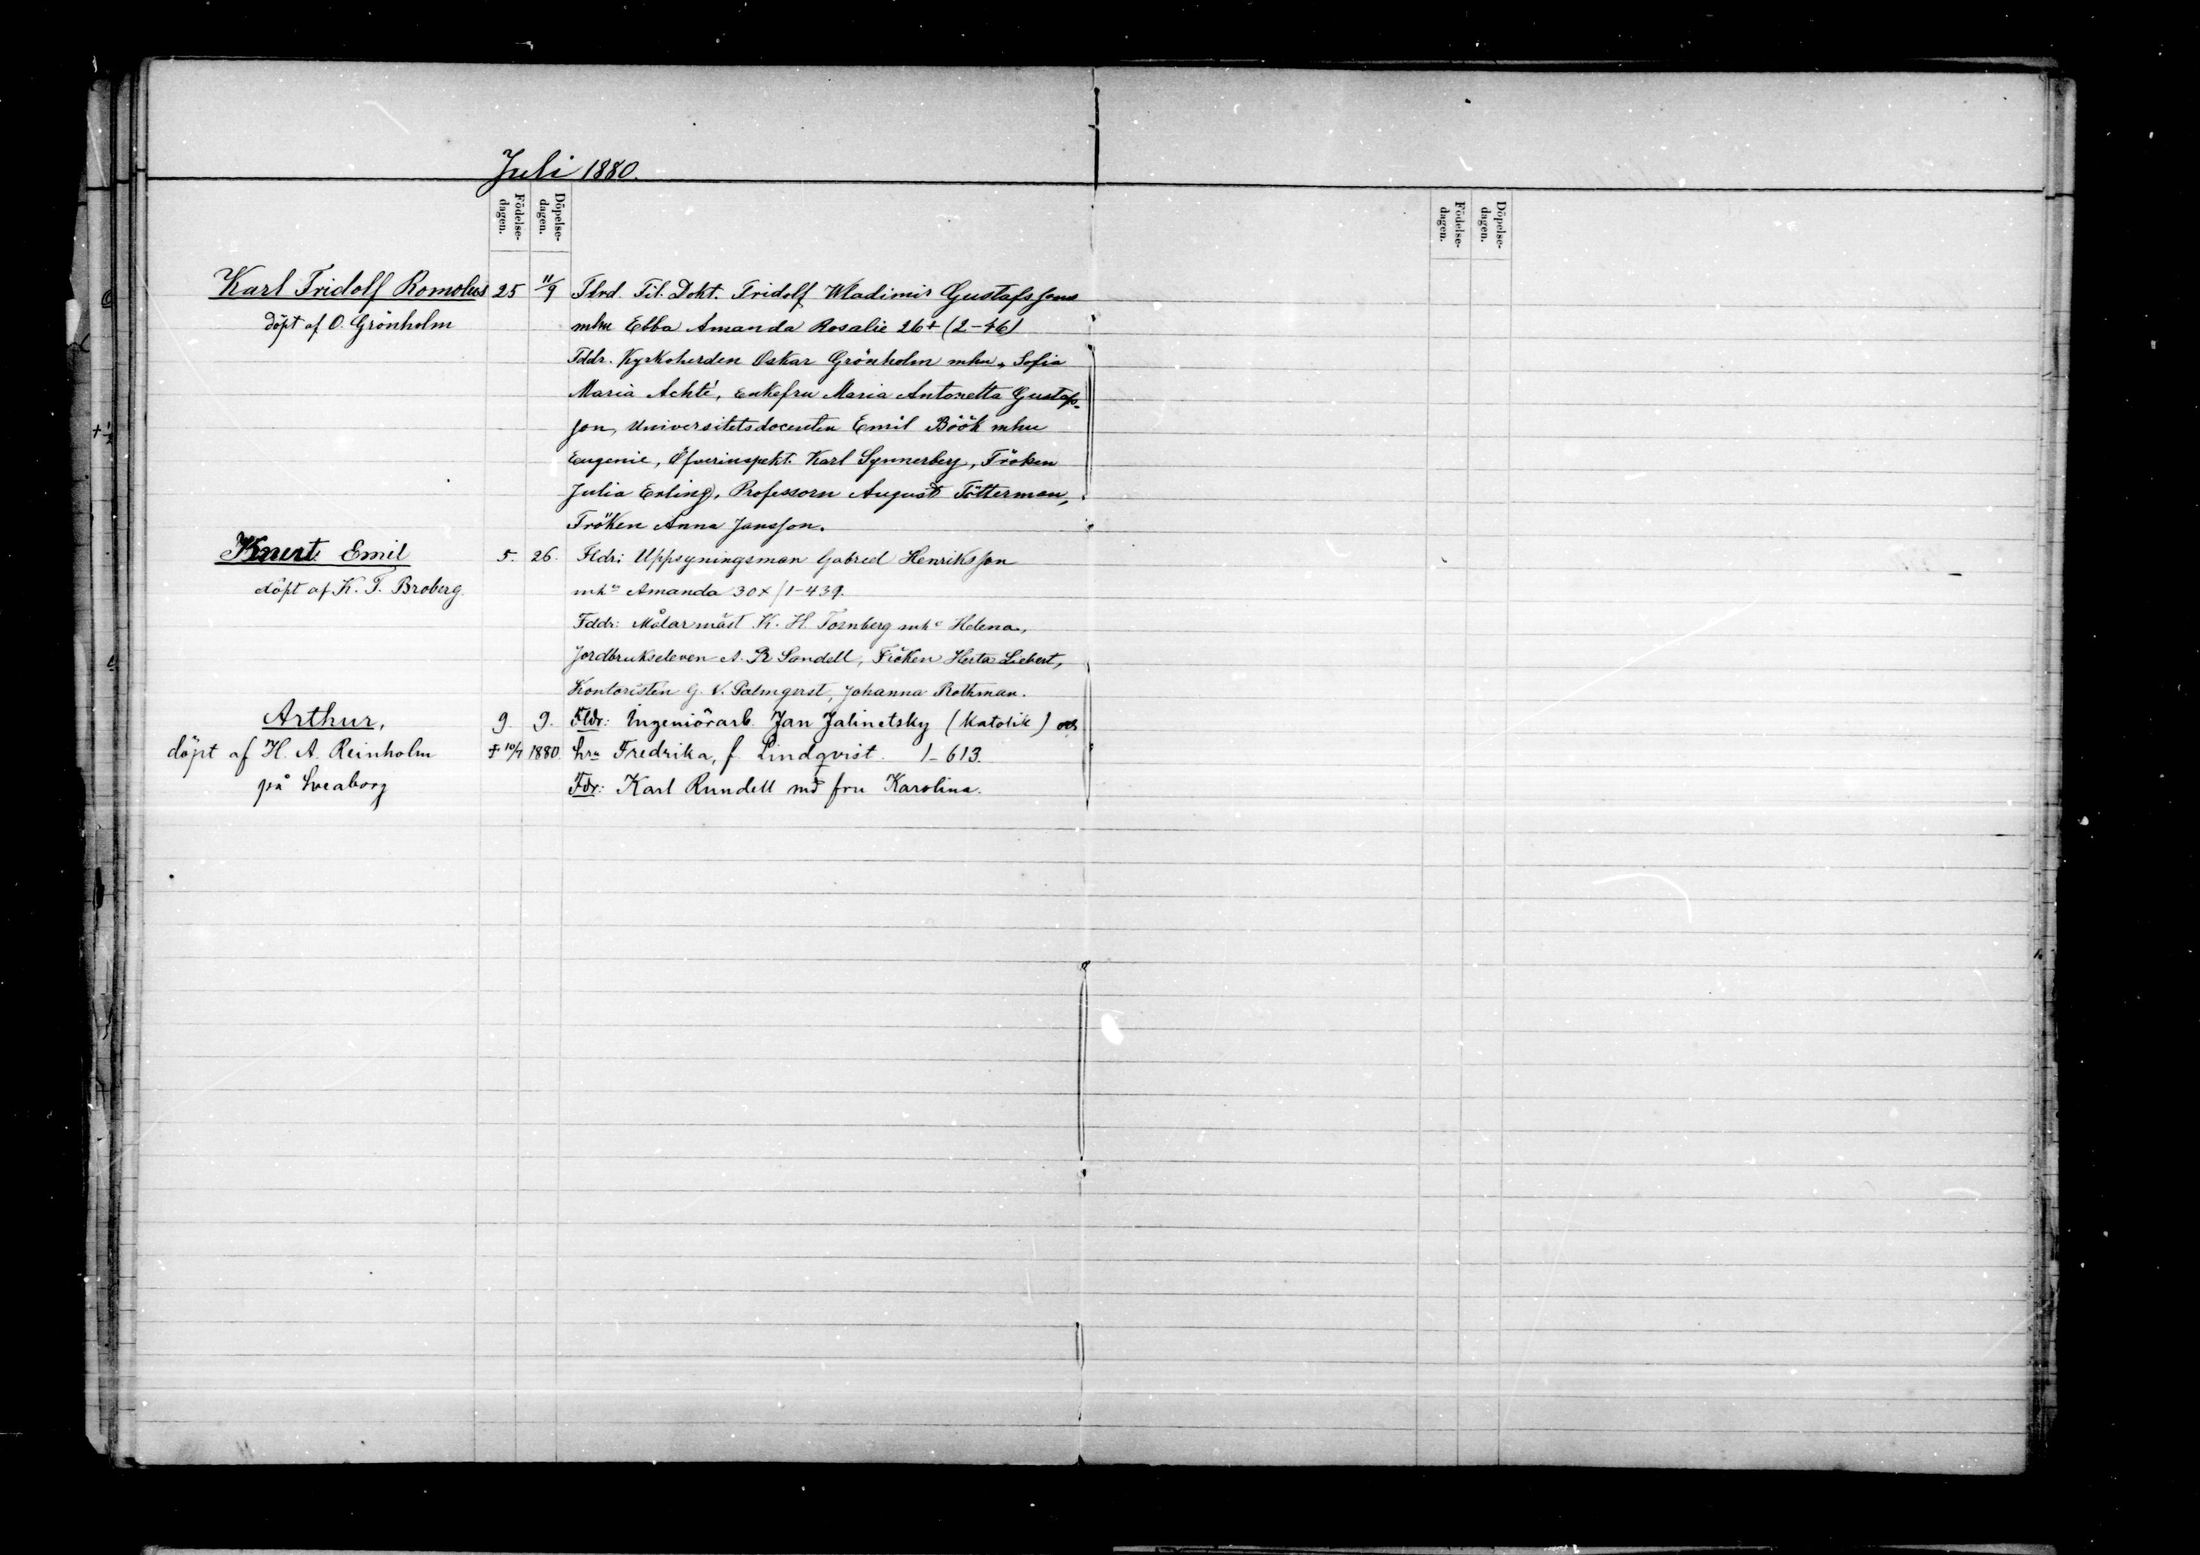 Juli 1880.
Födelse-dagen. Döpelse-dagen.
Födelse-dagen. Döpelse-dagen.
Karl Fridolf Romolus 25 11/9 Flrd. Fil. Dokt. Fridolf Wladimir Gustafsson
döpt af O. Grönholm mhu Ebba Amanda Rosalie 26+ (2-46)
Fddr. Kyrkoherden Oskar Grönholm mhu, Sofia
Maria Achté, enkefru Maria Antonetta Gustafs-
son, Universitetsdocenten Emil Böök mhu
Eugenie, Öfverinspekt. Karl Synnerberg, Fröken
Julia Erling, Professorn August Tötterman,
Fröken Anna Jansson.
Knut Emil 5. 26. Fldr: Uppsyningsman Gabriel Henriksson
döpt af K. T. Broberg. mhu Amanda 30x/1-439.
Fddr: Målarmäst K. H. Tornberg mhu Helena,
Jordbrukseleven A. R Sandell, Fröken Herta Liebert,
Kontoristen G. V. Palmqvist, Johanna Rothman.
Arthur, 9. 9. Fldr: Ingeniörarb. Jan Jalinetsky (Katolik) och
döpt af H. A. Reinholm + 10/7 1880. hru Fredrika, f. Lindqvist. 1-613.
på Sveaborg Fdr: Karl Rundell md fru Karolina.